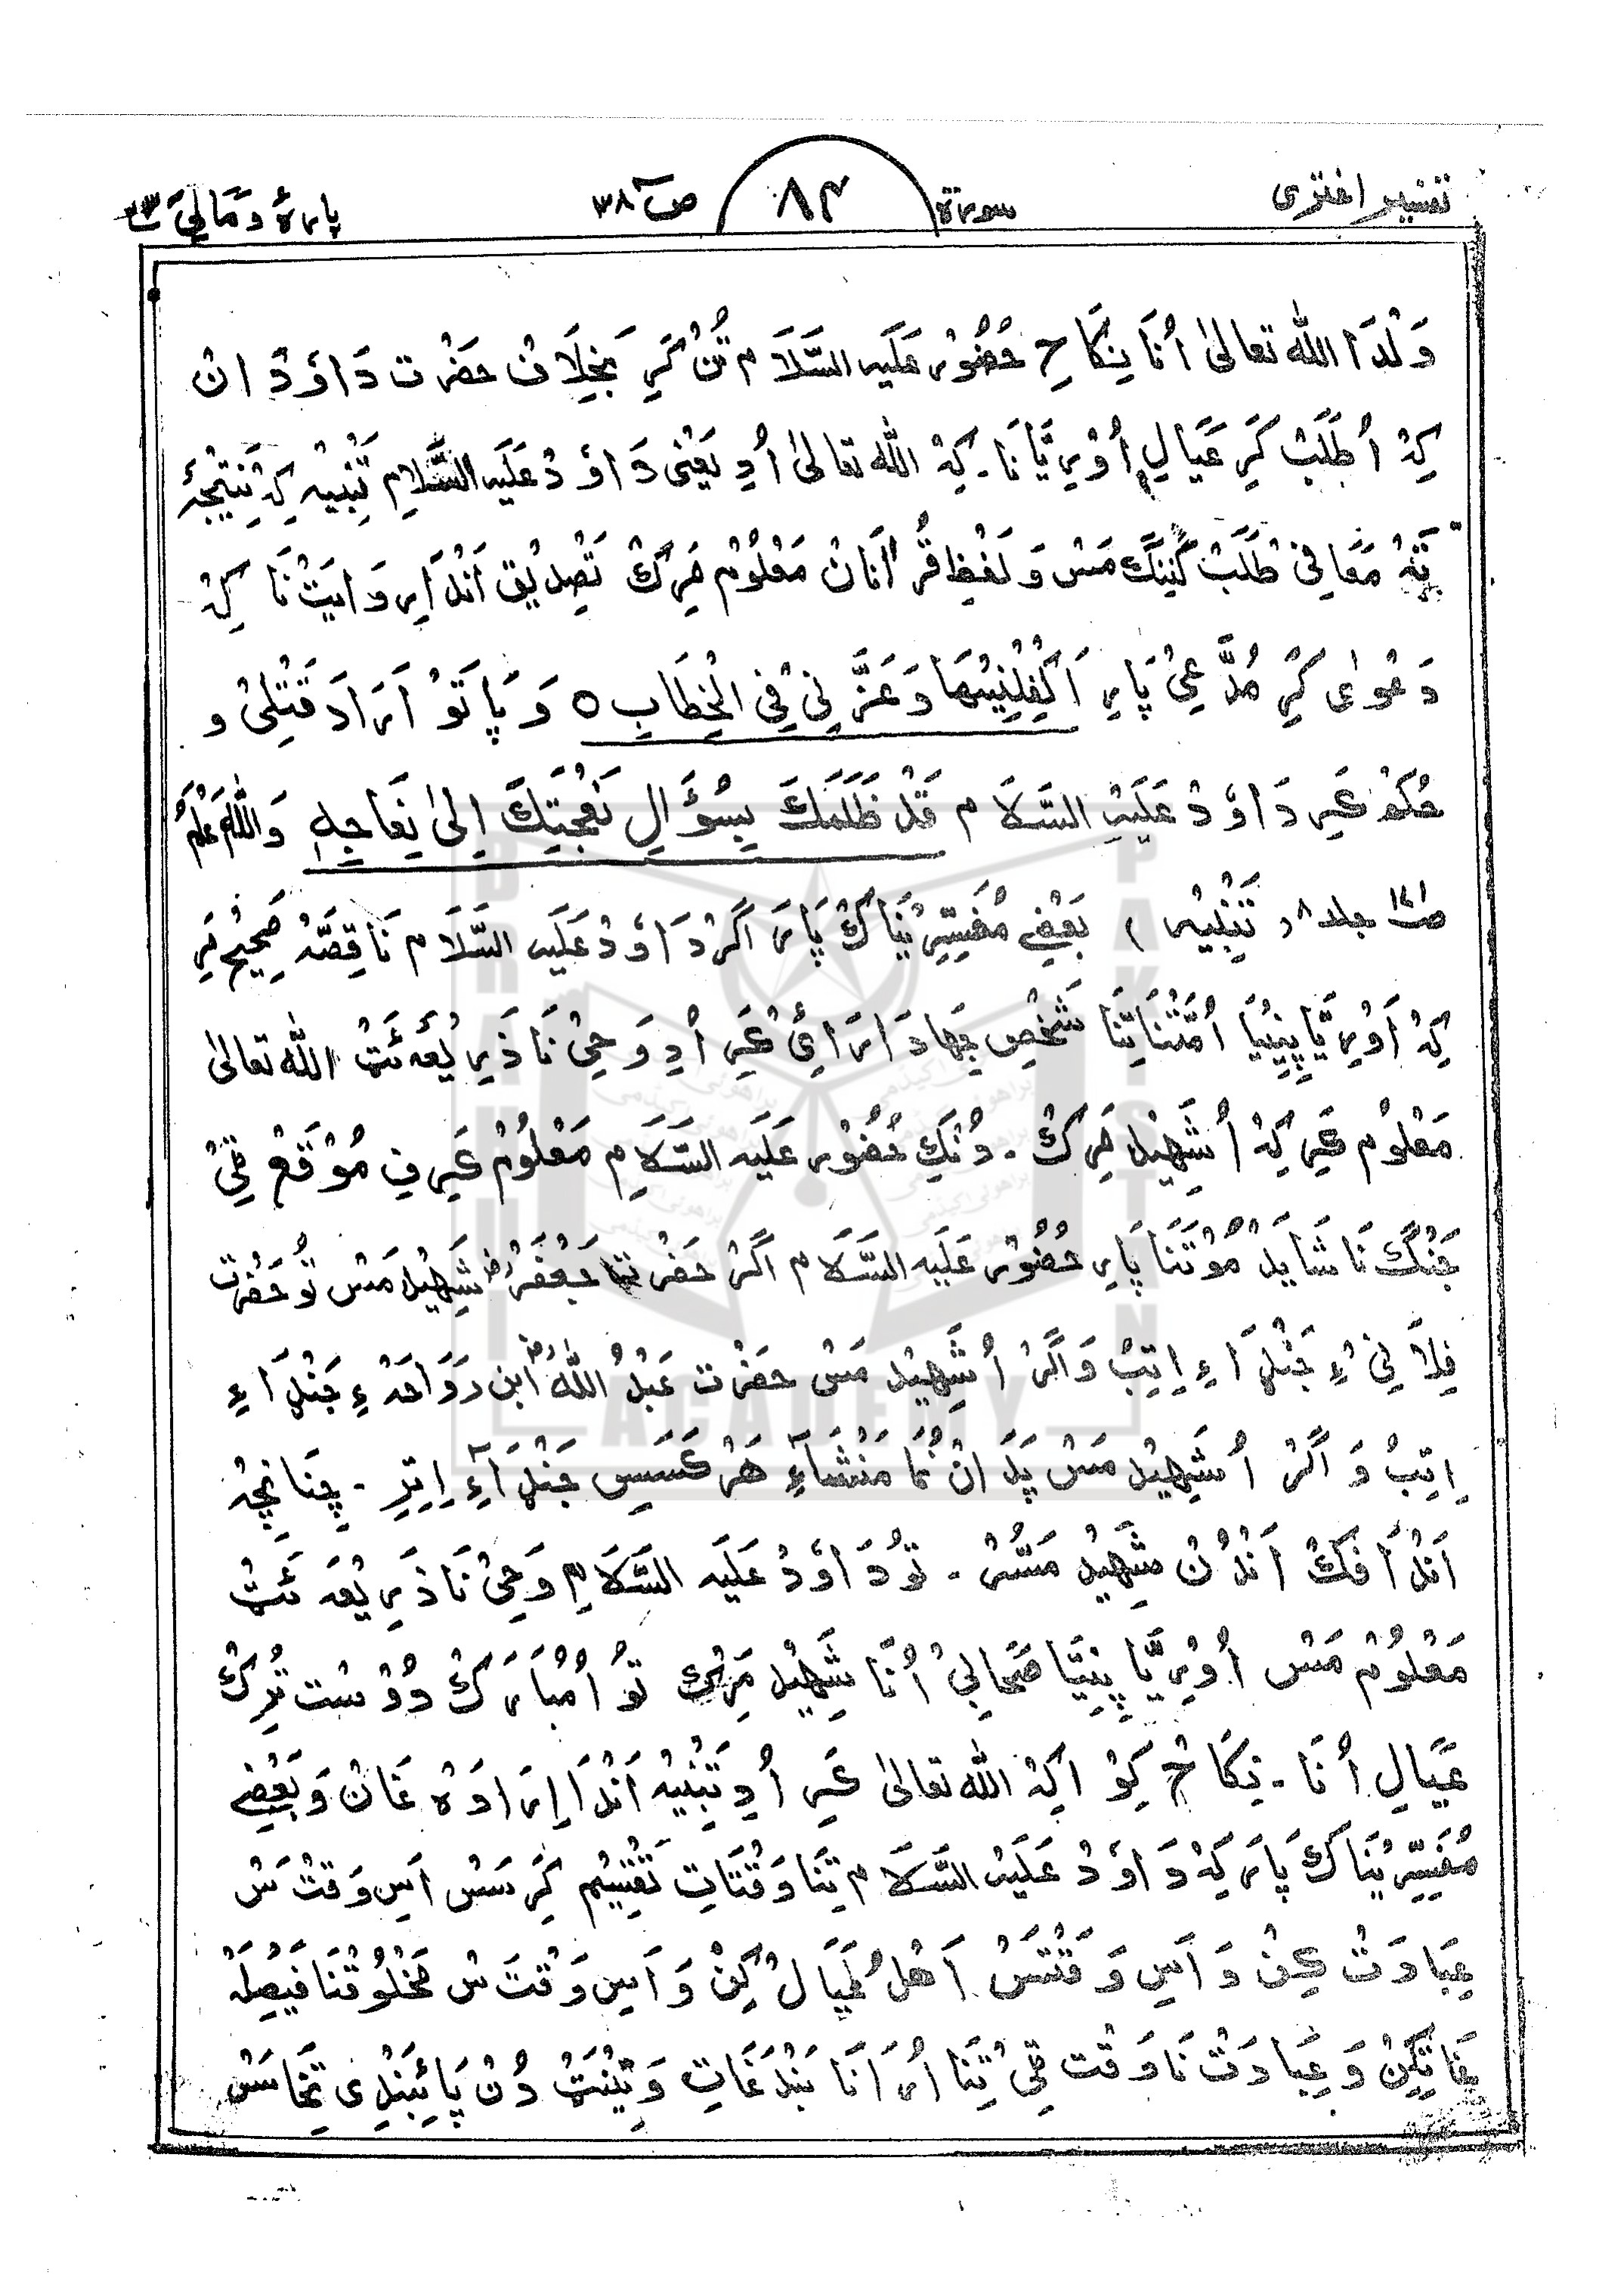 تفسیر اختری سورة ۸۴ صٓ ۳۸ پارهٔ ومالی ۲۳
وَلْدَا الله تعالیٰ اُنَا نِکَاحِ حُضُوْر عَلَیہ السَّلَام تُنْ کَرِ بَخِلَاف حَضْرت دَاوٗدْ ان
کِہْ اُ طَلَبْ کَرِ عَیَالِ اُوْرِیَّانَا۔ کِہْ الله تعالیٰ اُدِ یَعْنِیْ دَاوٗدْ عَلَیہ السَّلَامِ تَنْبِیْہ کِہ نَتِیْجَہٗ
تَہْ مَعَافِیْ طَلَبْ کَنِنْگ مَسْ وَ لَفْظِ قُرْآنَانْ مَعْلُوْمْ مَرِکْ تَصْدِیْق اَنْدَا رِوَایَتْ نَا کِہْ
دَعْویٰ کَرِ مُدَّعِیْ پَارِ اَکْفِلْنِیْهَا وَعَزَّنِیْ فِی الْخِطَابِ ○ وَ پَاتَوْ اَرَادَ قَتْلِیْ و
حُکم کَرِ دَاوٗدْ عَلَیہ السَّلَام قَدْ ظَلَمَكَ بِسُؤَالِ نَعْجَتِكَ اِلیٰ نِعَاجِهٖ وَاللهُ اَعْلَمُ
جلد ۸ ( تَنْبِیْہ ) بَعْضِے مُفَسِّرِیْنَاکْ پَارَ اَگَرْ دَاوٗدْ عَلَیہ السَّلَام نَا قِصَّہْ صَحِیْح مَرِ
کِہْ اُوْرِیَّا پِنِیْیَا اُمَّتْنَا تِنَا شَخْصِ جِهَادَا رَائِیْ کَرِ اُدِ وَحِیْ نَا ذَرِیْعَہ ئَتْ الله تعالیٰ
مَعْلُوْم کَرِ کِہْ اُ شَهِیْد مَرِکْ۔ دُنْکِ حُضُوْر عَلَیہ السَّلَامِ مَعْلُوْم کَرِفِ مُوْقَعْ ٹِیْ
جَنْگ نَا شَایَدْ مُوْتَنَا پَارِ حُضُوْر عَلَیہ السَّلَام اَگَرْ حَضْرت جَعْفَرْ رض شَهِیْد مَسْ تُوْ حَضْرت
فِلَانِیْ ءِ جَنْڈَا ءِ اِتِبْ وَاَگَرْ اُ شَهِیْد مَسْ حَضْرت عَبْدُ اللهْ رض ابن رَوَاحَہْ ءِ جَنْڈَا ءِ
اِتِبْ وَ اَگَرْ اُ شَهِیْد مَسْ پَدَانْ نُمَا مَنْشَآءِ هَرْ کَسَسِ جَنْڈَآءِ اِتِرِ۔ چِنَانْچِہْ
اَنْدَا فَکْ اَنْدُنْ شَهِیْد مَسُّرْ۔ تُوْ دَاوٗدْ عَلَیہ السَّلَامِ وَحِیْ نَا ذَرِیْعَہ ئَتْ
مَعْلُوْمْ مَسْ اُوْرِیَّا پِنِیَّا صَحَابِیْ اُنَا شَهِیْد مَرِکْ تُوْ اُ مُبَارَکْ دُوْسْت تُرِکْ
عَیَالِ اُنَا۔ نِکَاحْ کِوْ اَکِہْ الله تعالیٰ کَرِ اُدِ تَنْبِیْہ اَنْدَا اِرَادَہ غَانْ وَ بَعْضِے
مُفَسِّرِیْنَاکْ پَارَ کِہْ دَاوٗدْ عَلَیہ السَّلَام تِنَا وَقْتَاتِ تَقْسِیْم کَرِسَسْ اَسِ وَقْتَسْ
عِبَادَتْ کِنْ وَ اَسِ وَقْتَسْ اَهْلُ عَیَالْ کِنْ وَ اَسِ وَقْتَسْ مَخْلُوْقْنَا فَیْصِلَہْ
غَاتِکِنْ وَ عِبَادَتْ نَا وَقْت ٹِیْ تِنَا اُرَانَا بَنْد غَاتِ وَ بَنْدی تَخَاسَسْ